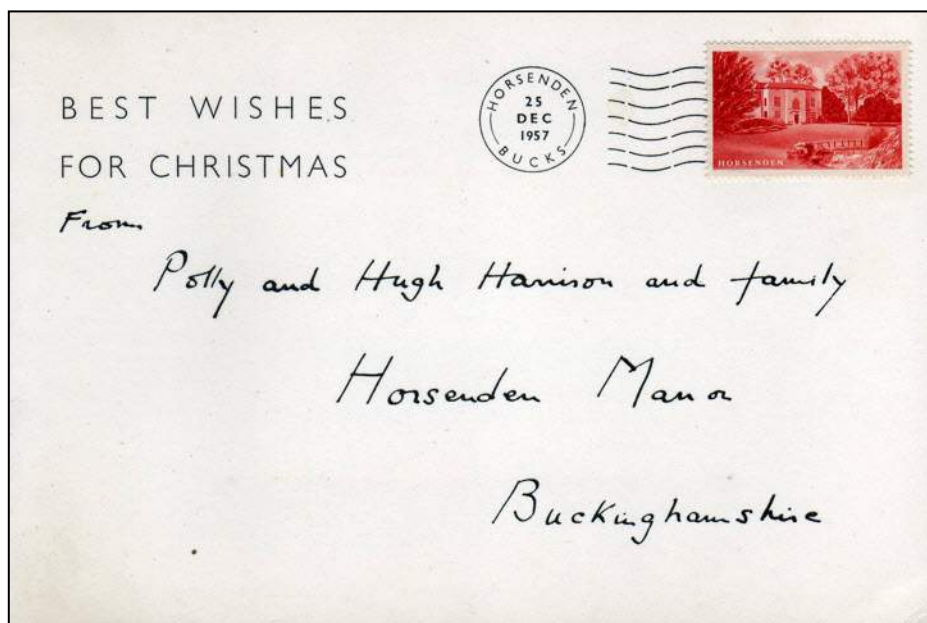 BEST WISHES
FOR CHRISTMAS
HORSENDEN
25
DEC
1957
BUCKS
HORSENDEN
From
Polly and Hugh Harrison and family
Horsenden Manor
Buckinghamshire